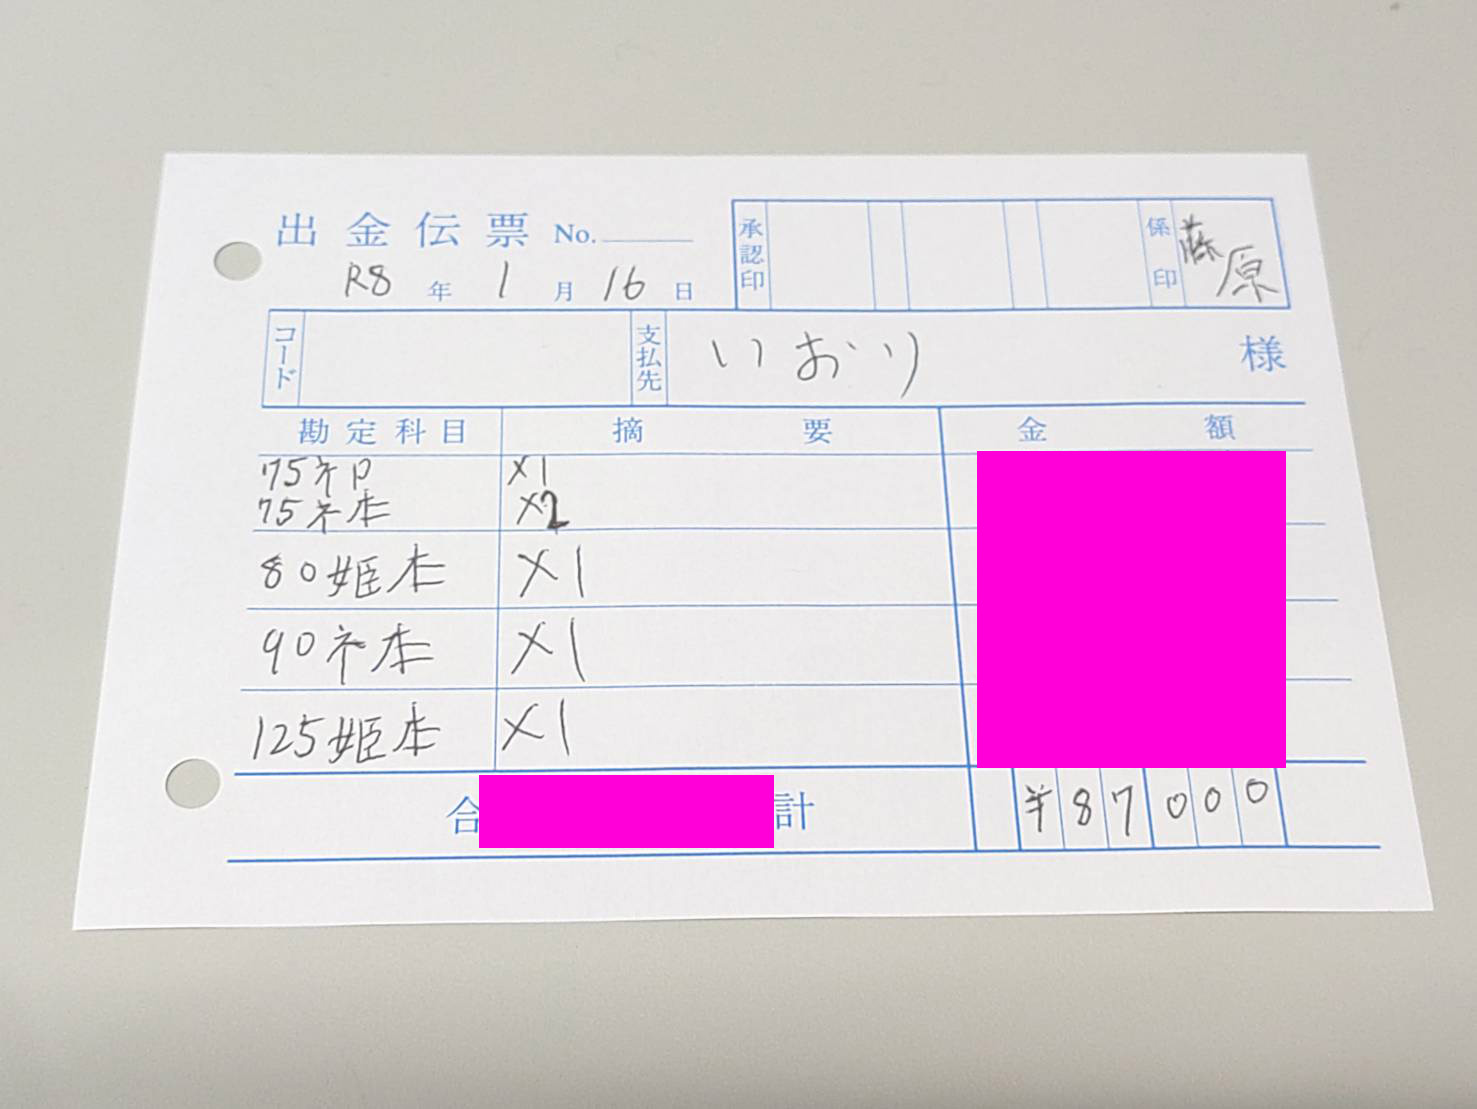 出金伝票 No.
R8年1月16日
承認印
係印 藤原
コード
支払先 いおり 様
勘定科目 摘要 金額
75ネP ×1
75ネ本 ×2
80姫本 ×1
90ネ本 ×1
125姫本 ×1
合計 ¥87000